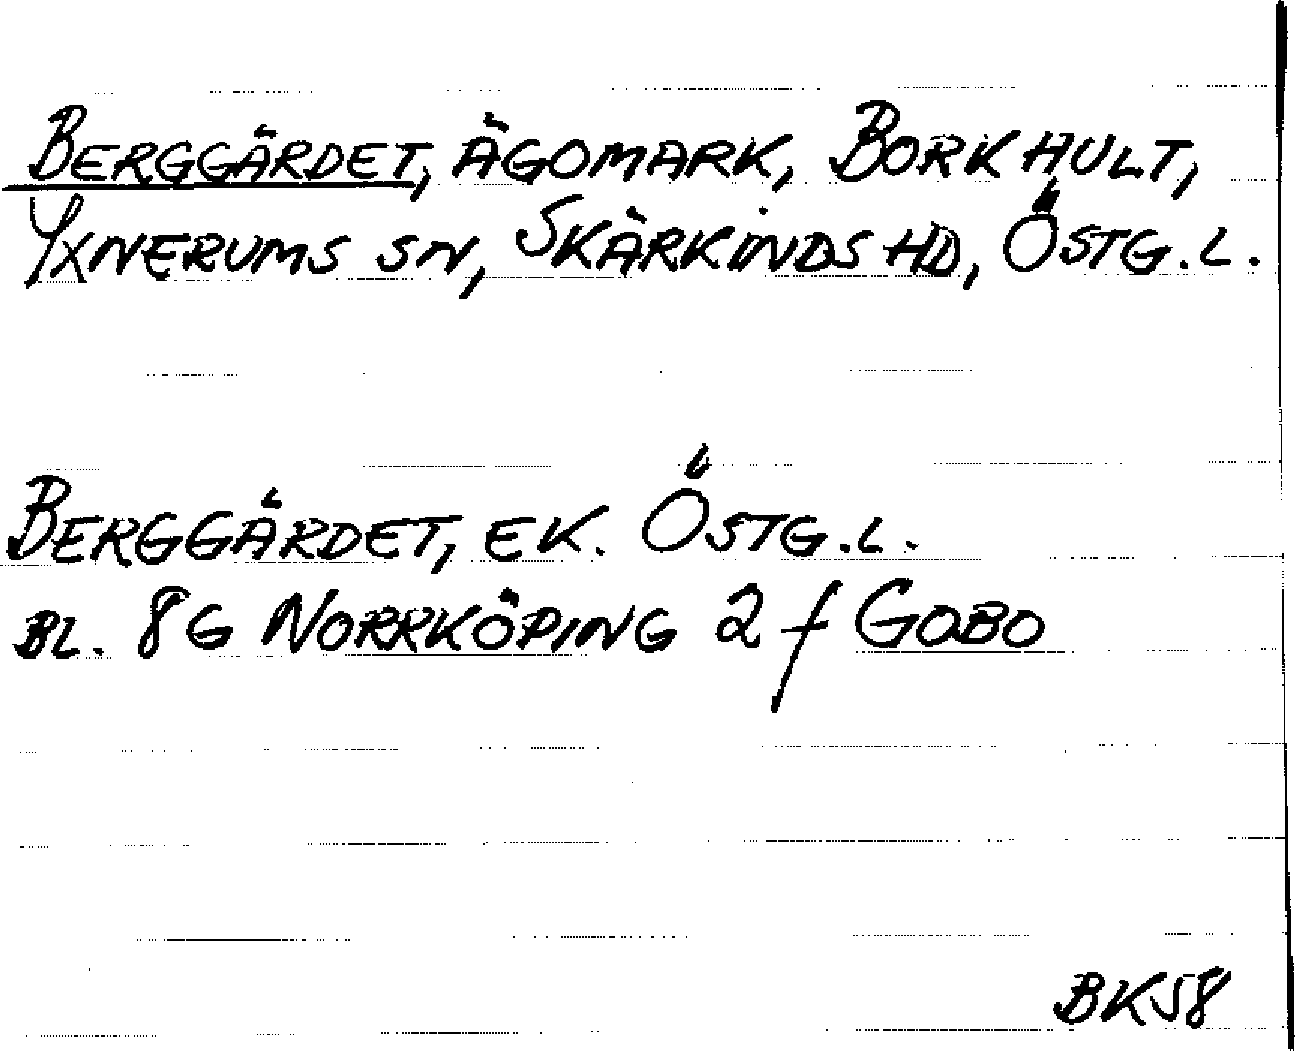 BERGGÄRDET, ÄGOMARK, BORKHULT,
YXNERUMS SN, SKÄRKINDS HD, ÖSTG.L.
BERGGÄRDET, EK. ÖSTG.L.
BL. 8G NORRKÖPING 2f GOBO
BK58